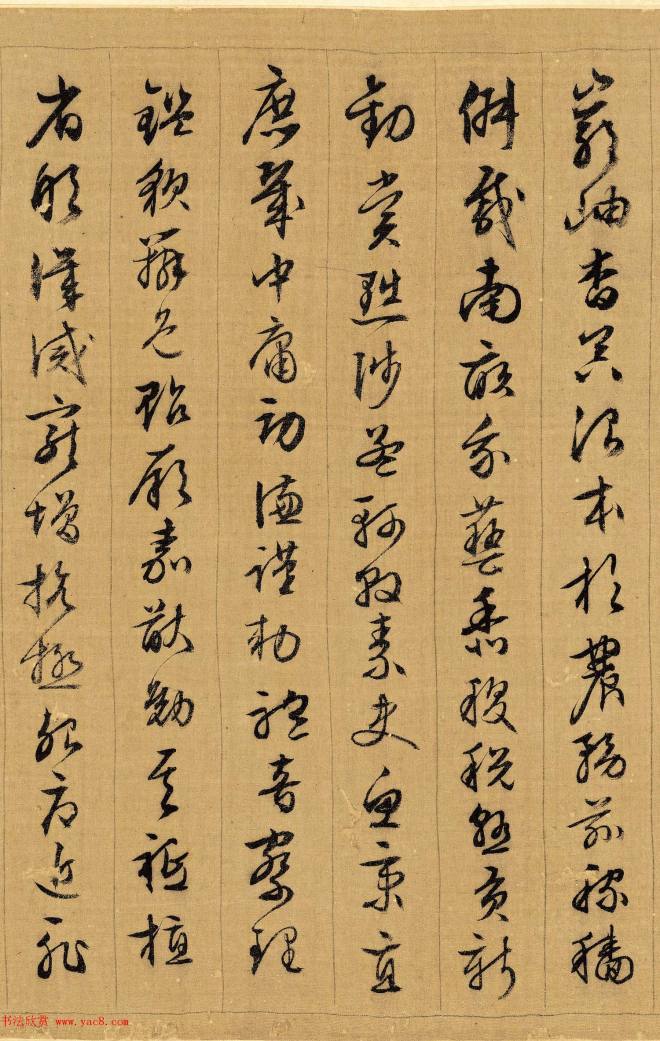 巖岫杳冥治本於農務茲稼穡
俶載南畝我藝黍稷稅熟貢新
勸賞黜陟孟軻敦素史魚秉直
庶幾中庸勞謙謹敕聆音察理
鑑貌辨色貽厥嘉猷勉其祗植
省躬譏誡寵增抗極殆辱近恥
书法欣赏 www.yac8.com